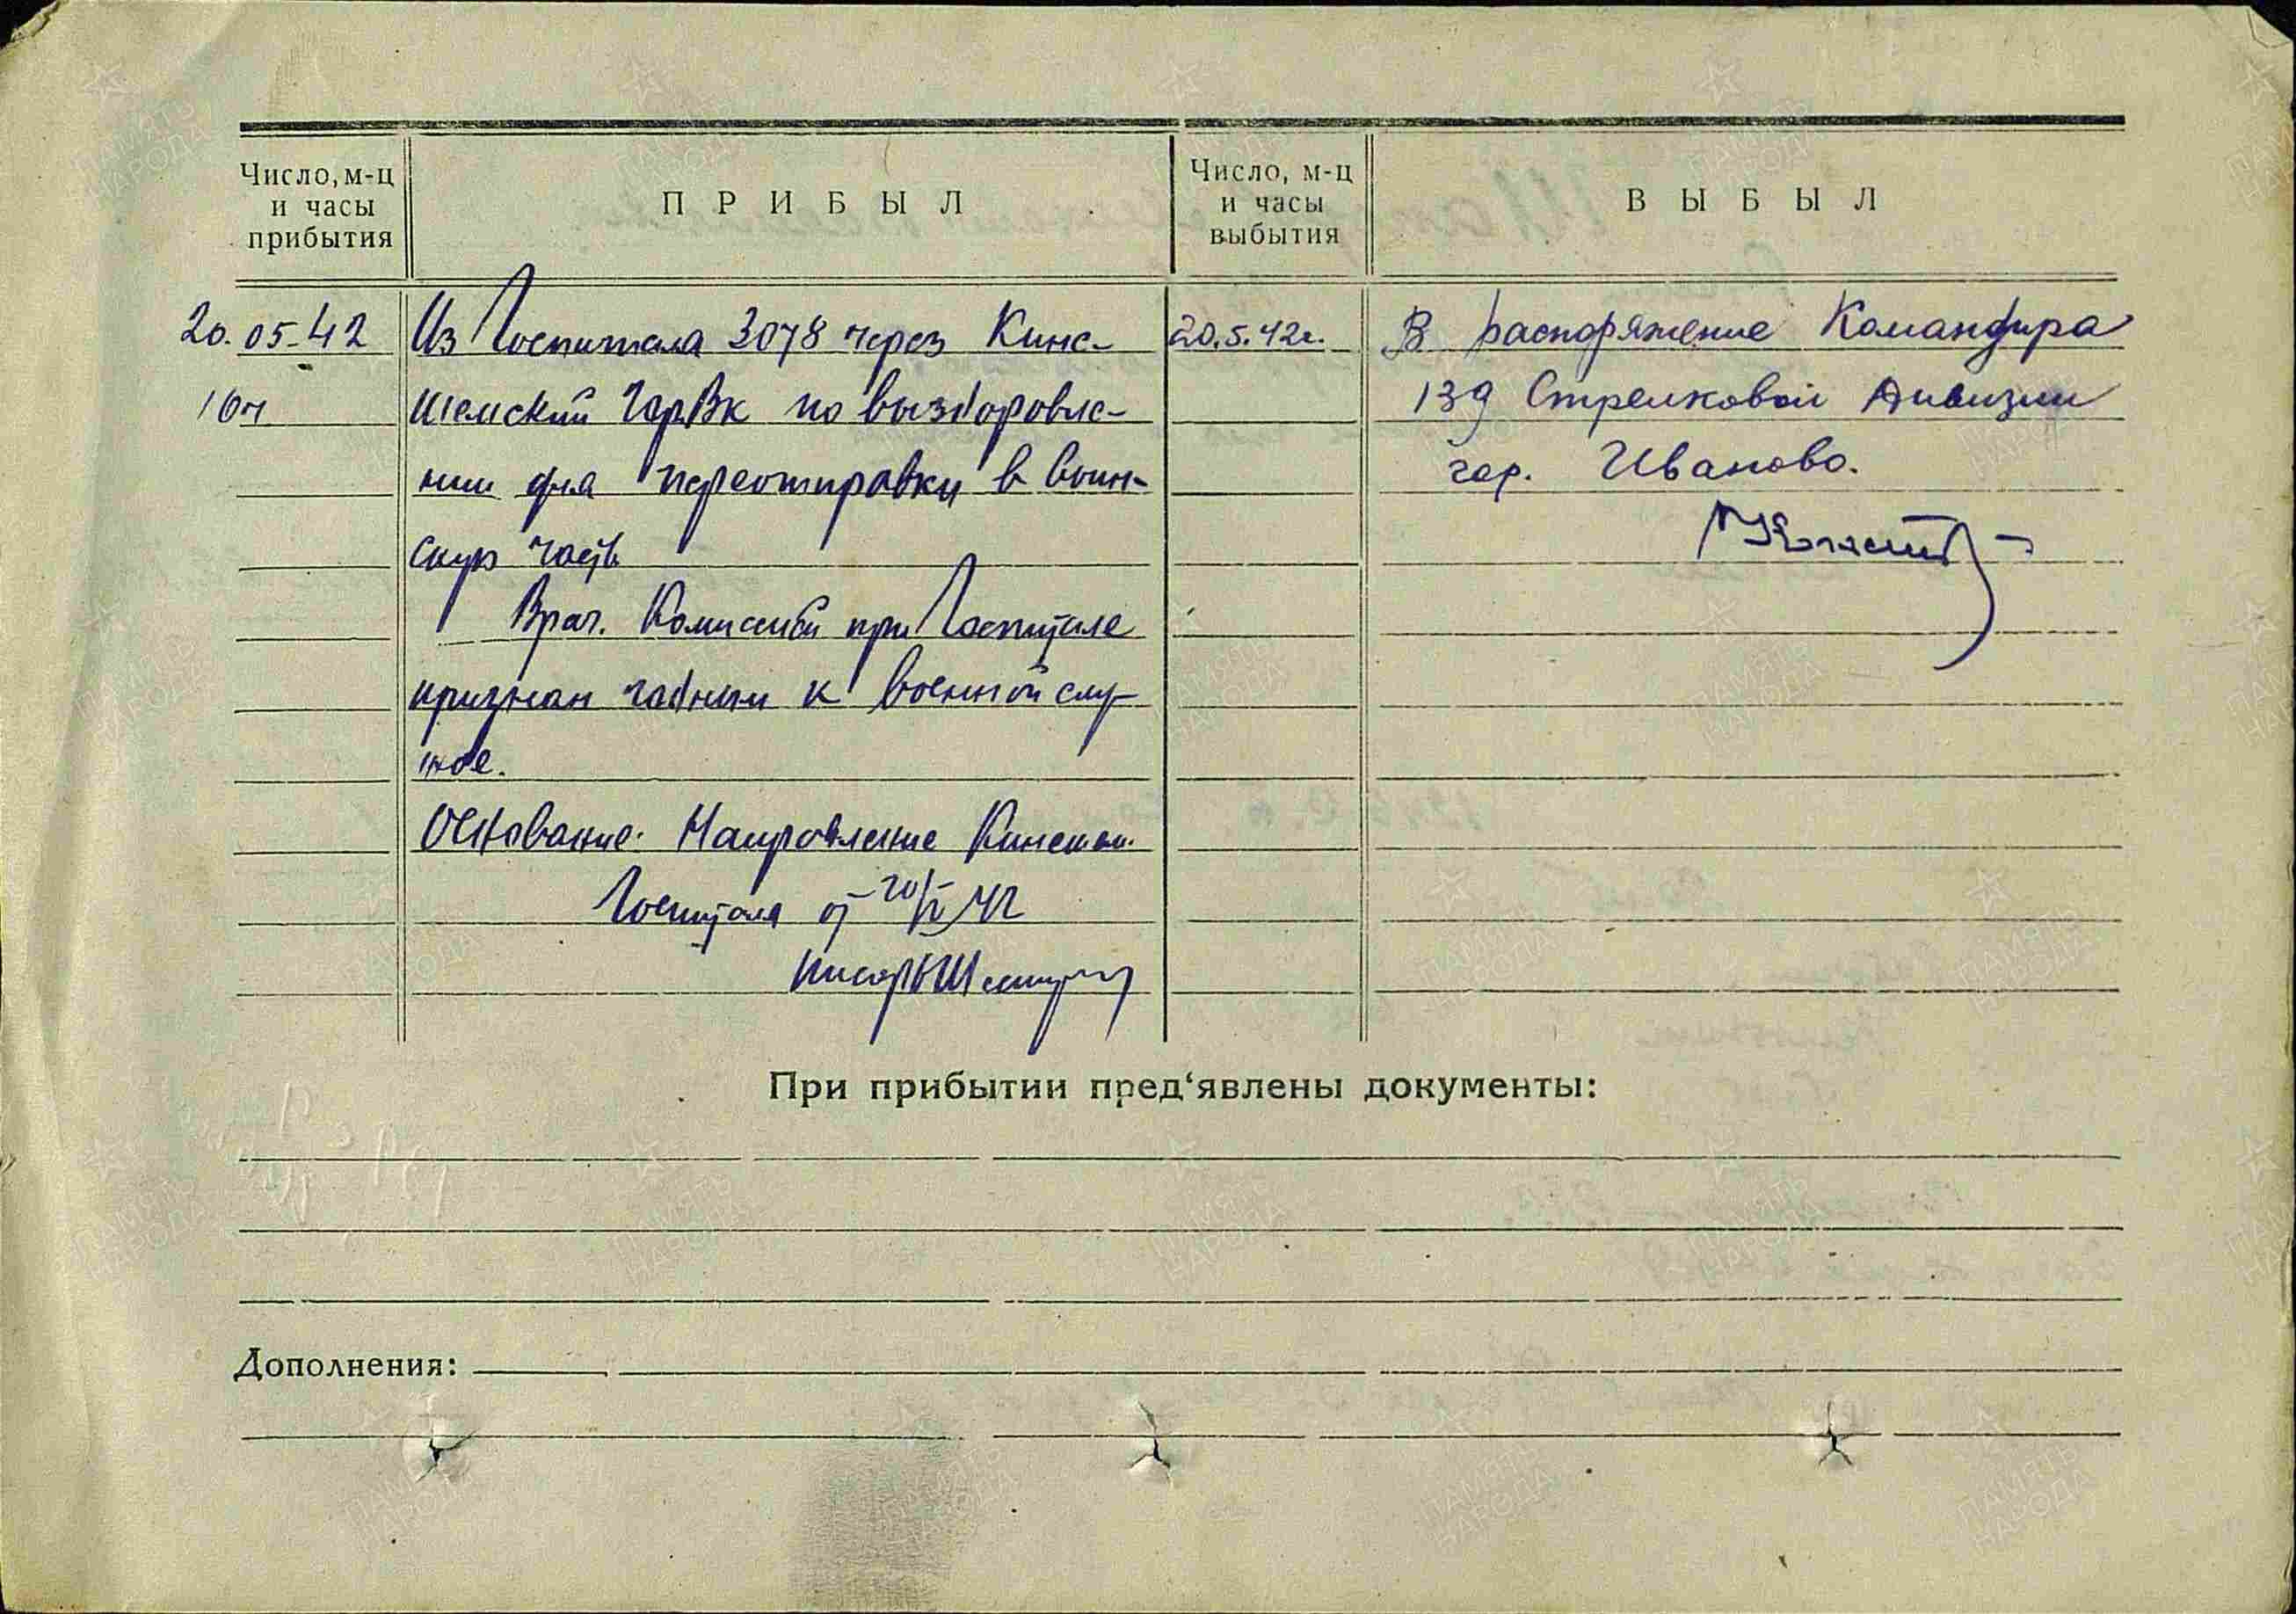 Число, м-ц
и часы
прибытия
ПРИБЫЛ
Число, м-ц
и часы
выбытия
ВЫБЫЛ
20.05-42
16ч
Из Госпиталя 3078 через Кине-
шемский ГорВк по выздоровле-
нии для переотправки в воин-
скую часть
Врач. Комиссией при Госпитале
признан годным к военной слу-
жбе.
Основание: Направление Кинешем.
Госпиталя от 20/V 42
Писарь
20.5.42г.
В распоряжение Командира
139 Стрелковой Дивизии
гор. Иваново.
При прибытии пред‘явлены документы:
Дополнения:
ПАМЯТЬ
НАРОДА